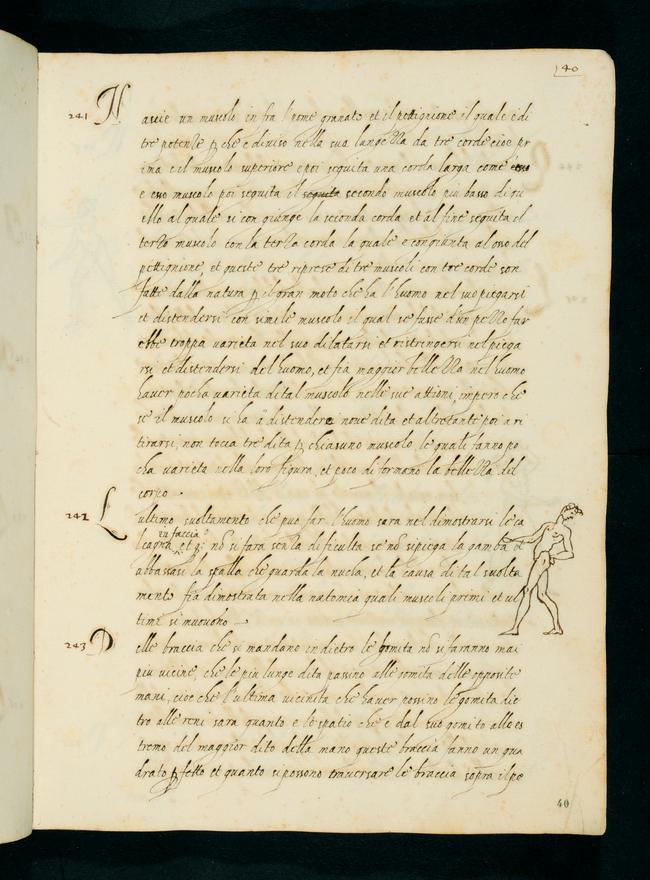 40
241 Nascie un muscolo in fra l'pome granato et il pettignione il quale e di
tre potentie p che e diviso nella sua lungeza da tre corde cioe pr
ima e il muscolo superiore e poi seguita una corda larga come
e esso muscolo poi seguita il seguita secondo muscolo piu basso di qu
ello al quale si con giunge la seconda corda et al fine seguita el
terzo muscolo con la terza corda la quale e congiunta al oso del
pettignione, et queste tre riprese di tre muscoli con tre corde son
fatte dalla natura p il gran moto che ha l'huomo nel suo piegarsi
et distendersi con simile muscolo el qual se fusse d'un pezzo far
ebbe troppa varieta nel suo dilatarsi et ristringersi nel piega
rsi et distendersi del huomo, et fia maggior belleza nel huomo
haver pocha varieta di tal muscolo nelle sue attioni, impero che
se il muscolo si ha a distendere nove dita et altretante poi a ri
tirarsi, non tocca tre dita p chiasuno muscolo le quali fanno po
cha varieta nella loro figura, et poco di formano la belleza del
corpo
242 Lultimo svoltamento che puo far l'huomo sara nel dimostrarsi le ca
in faccia
lcagna, et q: nō si fara senza dificulta se nō si piega la gamba et
abbassasi la spalla che guarda la nucha, et la causa di tal svolta
mento fia dimostrata nella natomia quali muscoli primi et ul
timi si muovono
243 Delle braccia che si mandano in dietro le gomita nō si faranno mai
piu vicine, che le piu lunge dita passino alle gomita delle opposite
mani, cioe che l'ultima vicinita che haver possino le gomita die
tro alle reni sara quanto e lo spatio che e dal suo gomito allo es
tremo del maggior dito della mano queste braccia fanno un qua
drato p fetto et quanto si possono traversare le braccia sopra il pe
40